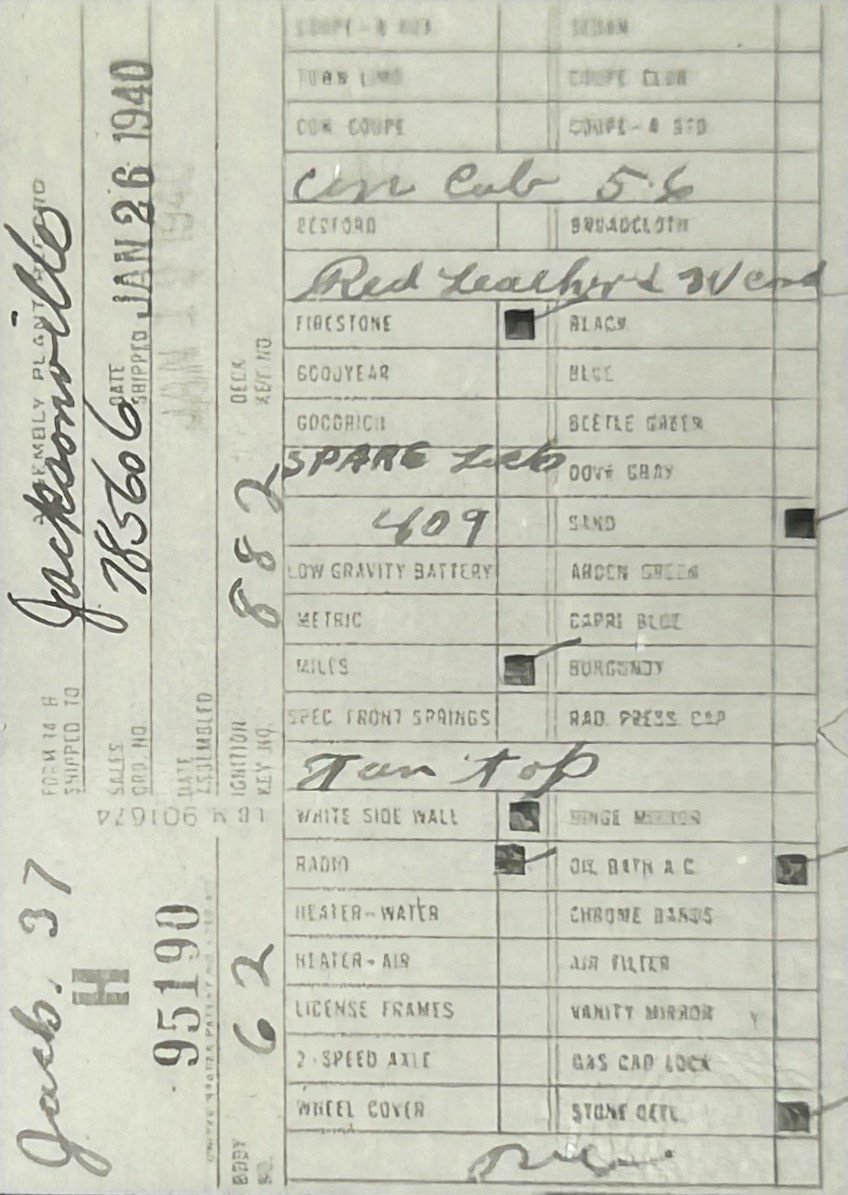 FORM 14 B
SHIPPED TO
Jacksonville
ASSEMBLY PLANT
SALES
ORD. NO.
785606
DATE
SHIPPED
JAN 26 1940
DATE
ASSEMBLED
JAN
IGNITION
KEY NO.
882
DECK
KEY NO.
Jack. 37
H
95190
BODY
NO.
62
901674
COUPE-4
SEDAN
TOWN LIMO
COUPE CLUB
CON COUPE
COUPE-4 STD
Con Cab 56
BEDFORD
BROADCLOTH
Red Leather & W Cord
FIRESTONE
BLACK
GOODYEAR
BLUE
GOODRICH
BEETLE GREEN
SPARE Lock
DOVE GRAY
409
SAND
LOW GRAVITY BATTERY
ARDEN GREEN
METRIC
CAPRI BLUE
MILES
BURGUNDY
SPEC. FRONT SPRINGS
RAD. PRESS CAP
Tan top
WHITE SIDE WALL
HINGE MIRROR
RADIO
OIL BATH A C
HEATER-WATER
CHROME BANDS
HEATER-AIR
AIR FILTER
LICENSE FRAMES
VANITY MIRROR
2-SPEED AXLE
GAS CAP LOCK
WHEEL COVER
STONE DEFL